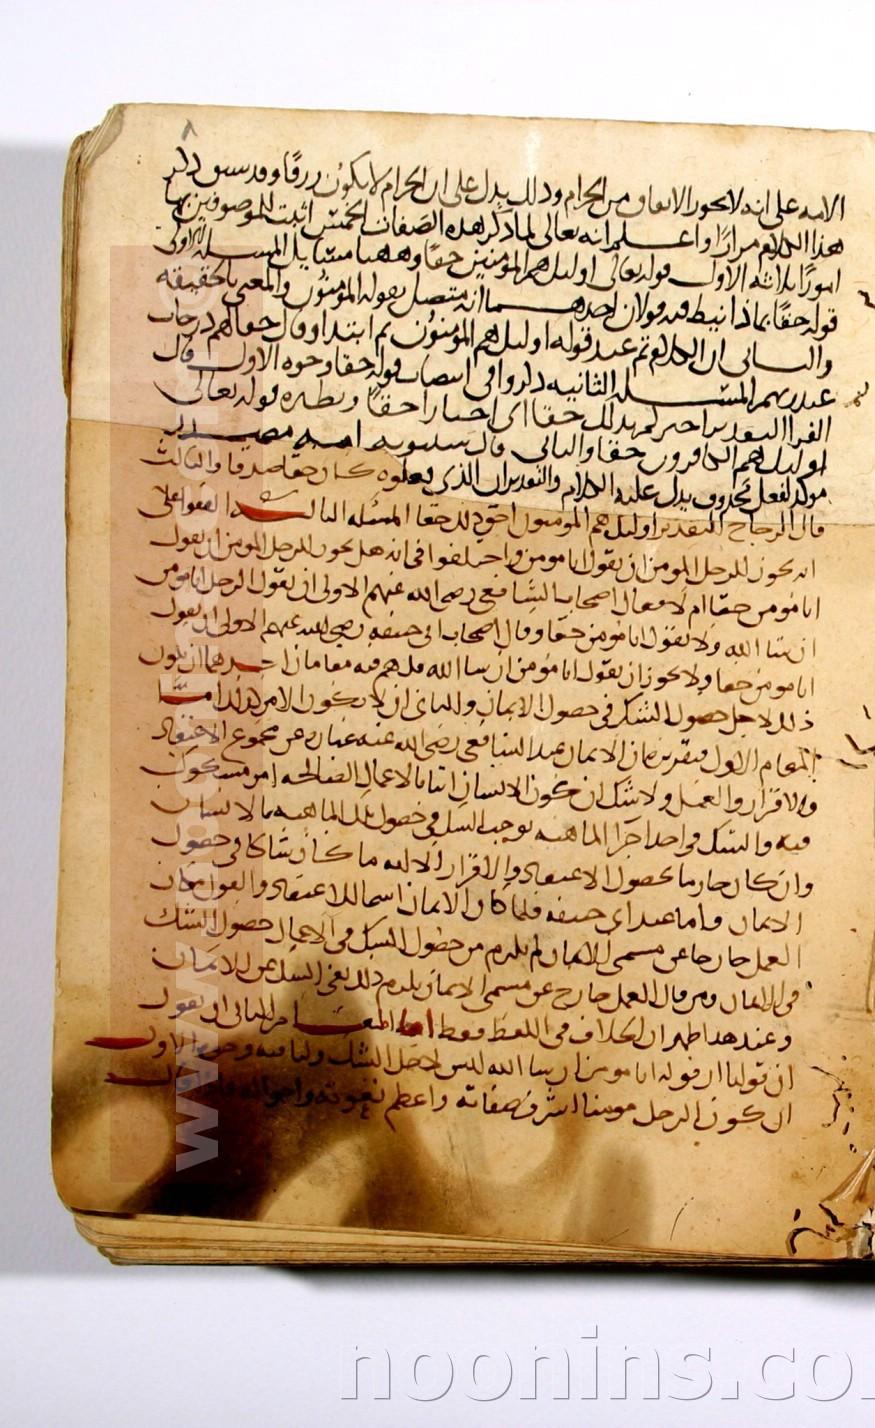 ٨
الامه على انه لا يجوز الانفاق من الحرام وذلك يدل على ان الحرام لا يكون رزقا وقد سبق ذكر
هذا الكلام مرارا واعلم انه تعالى لما ذكر هذه الصفات الخمس اثبت للموصوفين بها
امورا ثلاثه الاول قوله تعالى اوليك هم المومنين حقا وههنا مسايل المسله الاولى
قوله حقا بماذا نيط فيه قولان احدهما انه متصل بقوله المومنون والمعنى بالحقيقه
والثانى ان الكلام تم عند قوله اوليك هم المومنون ثم ابتدا وقال حقا لهم درجات
عند ربهم المسله الثانيه ذكروا فى انتصاب قوله حقا وجوه الاول قال
الفرا التقدير اخبركم بذلك حقا اى اخبارا حقا ونظيره قوله تعالى
اوليك هم الكافرون حقا والثانى قال سيبويه انه مصدر
موكد لفعل محذوف يدل عليه الكلام والتقدير ان الذى فعلوه كان حقا صدقا والثالث
قال الزجاج التقدير اوليك هم المومنون احق ذلك حقا المسئله الثالثه اتفقوا على
انه يجوز للرجل المومن ان يقول انا مومن واختلفوا فى انه هل يجوز للرجل المومن ان يقول
انا مومن حقا ام لا فقال اصحاب الشافعى رضى الله عنهم الاولى ان يقول الرجل انا مومن
ان شا الله ولا يقول انا مومن حقا وقال اصحاب ابى حنيفه رضى الله عنهم الاولى ان يقول
انا مومن حقا ولا يجوز ان يقول انا مومن ان شا الله فلهم فيه مقامان احدهما ان يكون
ذلك لاجل حصول الشك فى حصول الايمان والثانى ان لا يكون الامر كذلك اما
المقام الاول فتقريره ان الايمان عند الشافعى رضى الله عنه عباره عن مجموع الاعتقاد
والاقرار والعمل ولا شك ان كون الانسان اتيا بالاعمال الصالحه امر مشكوك
فيه والشك فى احد اجزا الماهيه يوجب الشك فى حصول تلك الماهيه فالانسان
وان كان جازما بحصول الاعتقاد والاقرار الا انه لما كان شاكا فى حصول
العمل كان
الايمان واما عند ابى حنيفه فلما كان الايمان اسما للاعتقاد والقول وكان
العمل خارجا عن مسمى الايمان لم يلزم من حصول الشك فى الاعمال حصول الشك
فى الايمان ومن قال العمل خارج عن مسمى الايمان يلزم ذلك نفى الشك عن الايمان
وعند هذا ظهر ان الخلاف فى اللفظ فقط اما المقام الثانى ان يقول
ان قولنا ان قوله انا مومن ان شا الله ليس لاجل الشك ولنا فيه وجوه الاول
ان كون الرجل مومنا اشرف صفاته واعظم نعوته واحواله
noonins.co